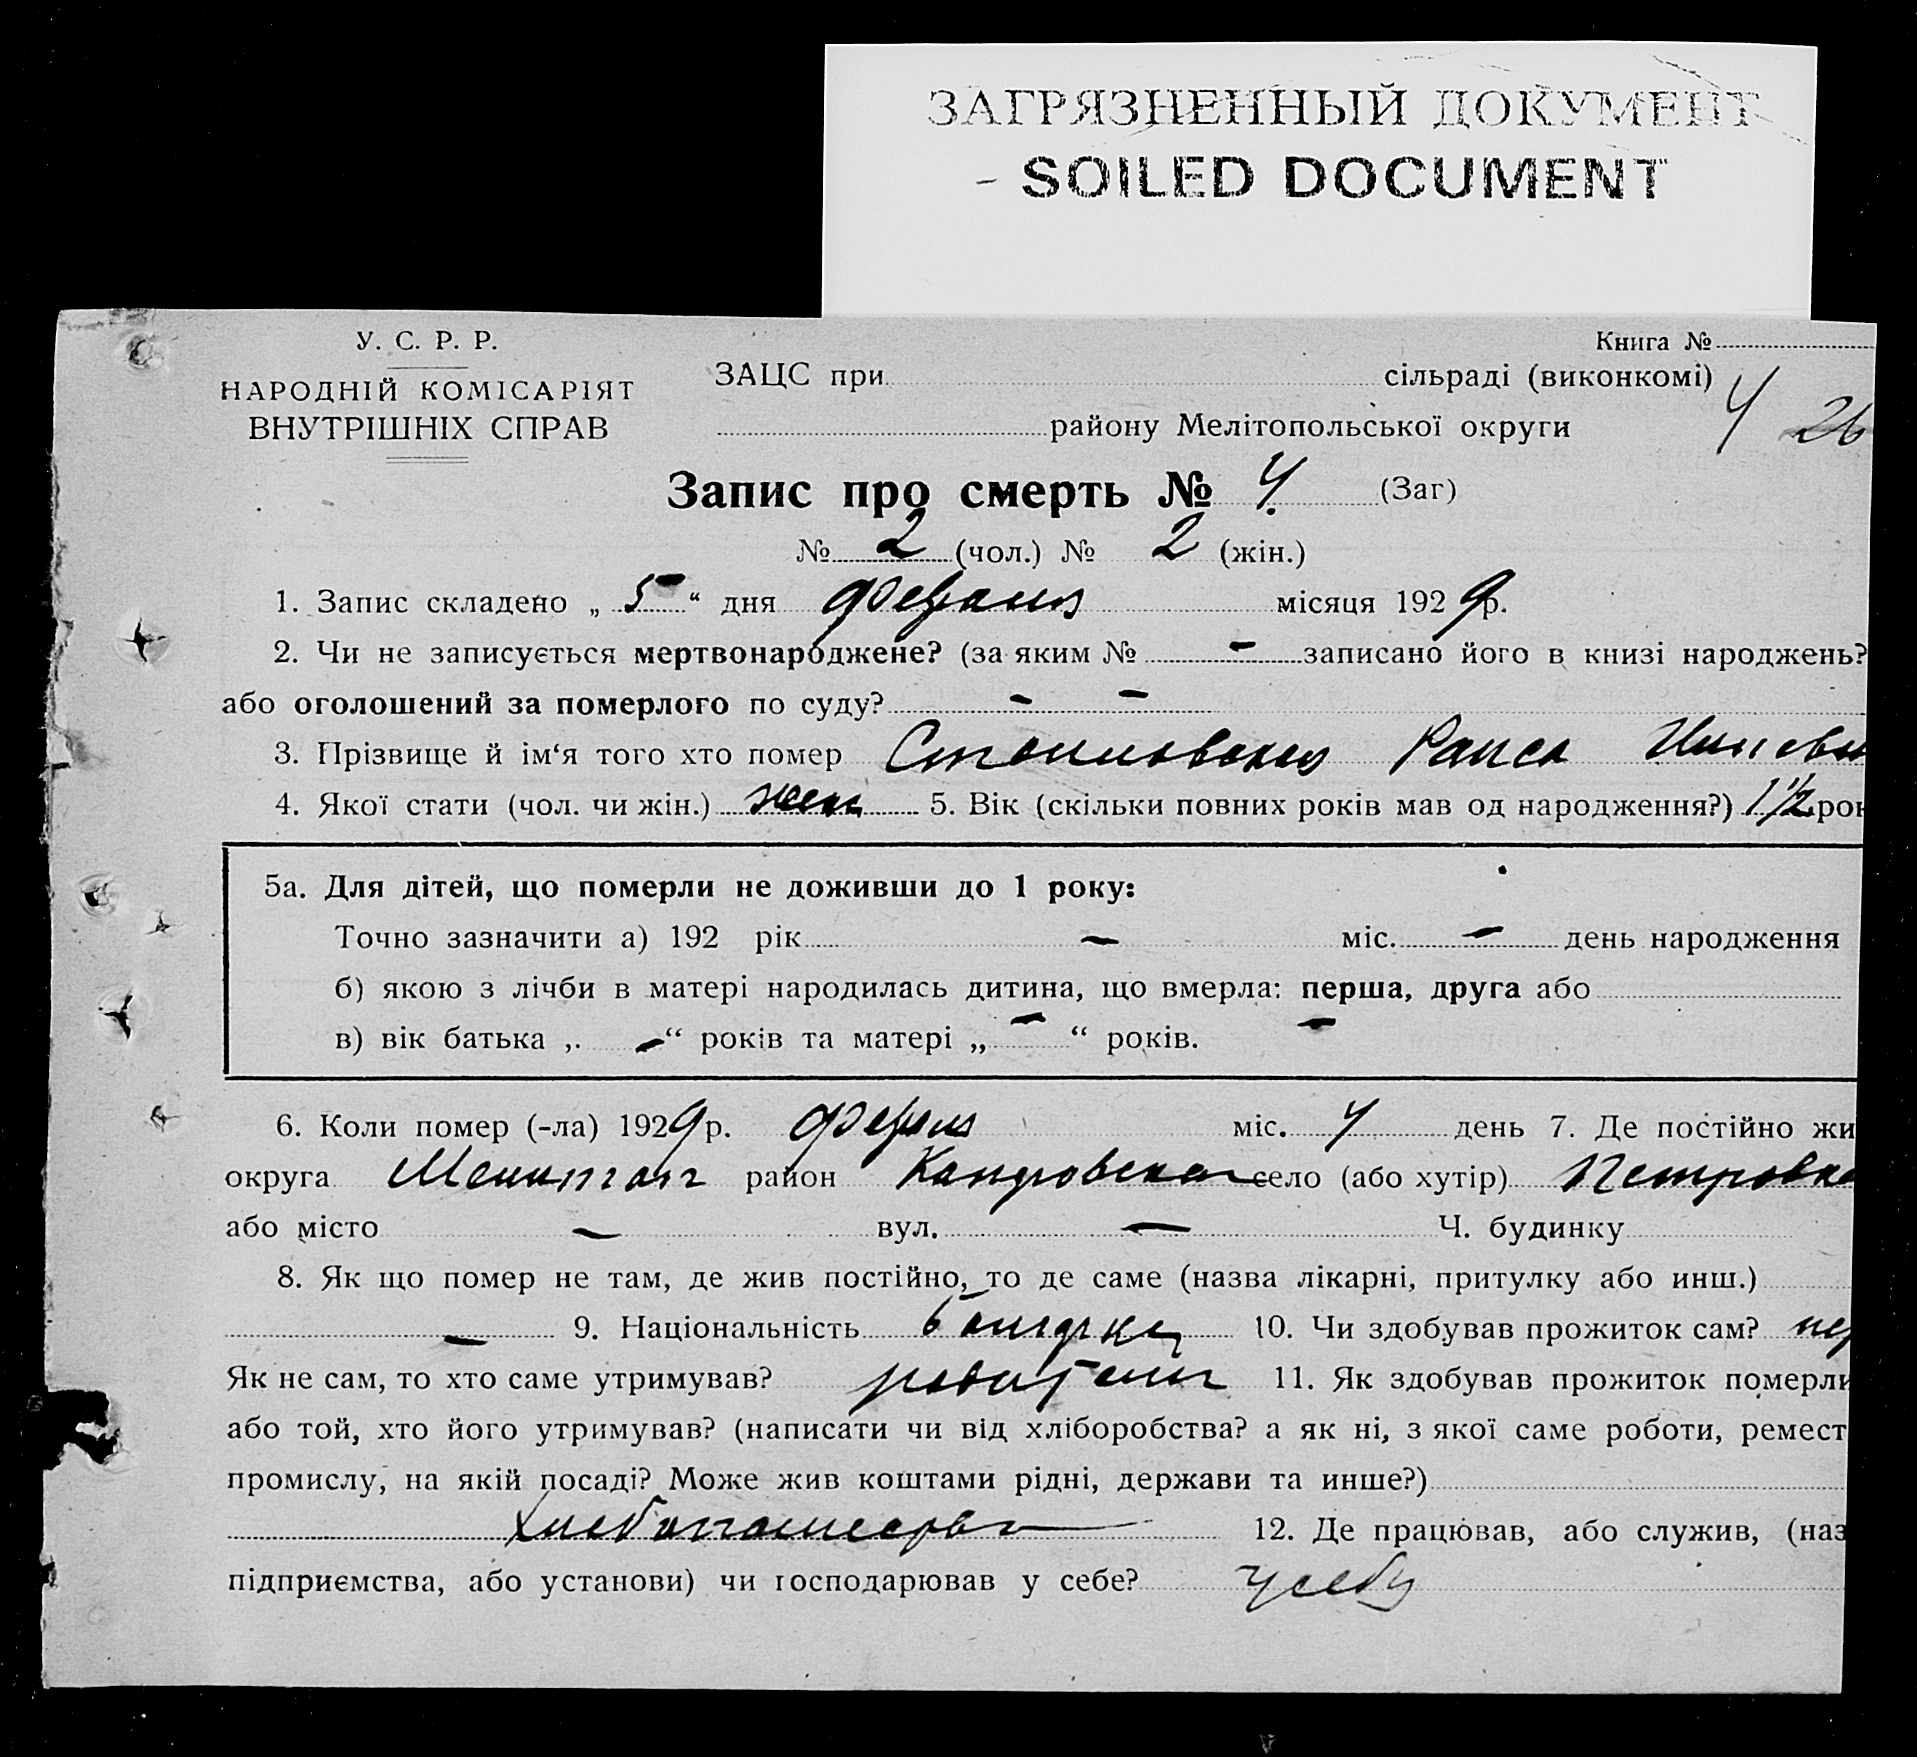 ЗАГРЯЗНЕННЫЙ ДОКУМЕНТ
- SOILED DOCUMENT
У. С. Р. Р.
НАРОДНІЙ КОМІСАРІЯТ
ВНУТРІШНІХ СПРАВ
Книга №
ЗАЦС при сільраді (виконкомі)
району Мелітопольської округи
4 26
Запис про смерть № 4. (Заг)
№ 2 (чол.) № 2 (жін.)
1. Запис складено „ 5 “ дня февраля місяця 1929р.
2. Чи не записується мертвонароджене? (за яким № - записано його в книзі народжень?
або оголошений за померлого по суду? - -
3. Прізвище й ім‘я того хто помер Раиса
4. Якої стати (чол. чи жін.) жен 5. Вік (скільки повних років мав од народження?) 1 1/2 рок
5а. Для дітей, що померли не доживши до 1 року:
Точно зазначити а) 192 рік - міс. - день народження
б) якою з лічби в матері народилась дитина, що вмерла: перша, друга або
в) вік батька „ - “ років та матері „ - “ років. -
6. Коли помер (-ла) 1929р. февраля міс. 4 день 7. Де постійно жи
округа Мелитоп район село (або хутір) Петровка
або місто - вул. - Ч. будинку
8. Як що помер не там, де жив постійно, то де саме (назва лікарні, притулку або инш.)
- 9. Національність болгарка 10. Чи здобував прожиток сам?
Як не сам, то хто саме утримував? родители 11. Як здобував прожиток померли
або той, хто його утримував? (написати чи від хліборобства? а як ні, з якої саме роботи, ремест
промислу, на якій посаді? Може жив коштами рідні, держави та инше?)
хлебопашество 12. Де працював, або служив, (наз
підприємства, або установи) чи господарював у себе? у себя